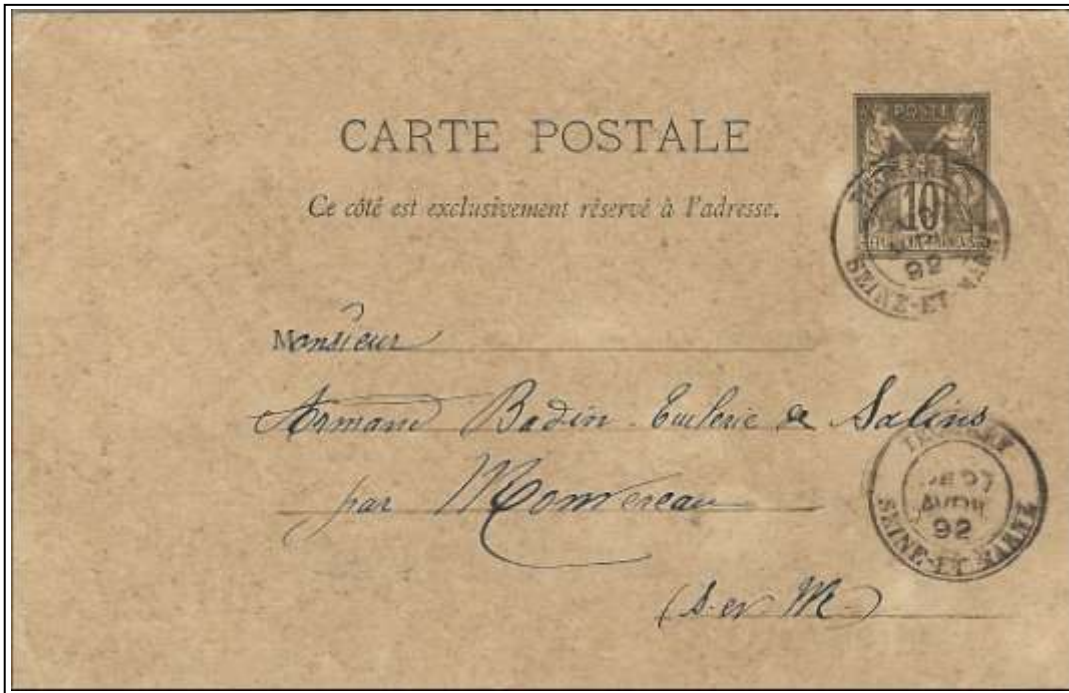 POSTE
CARTE POSTALE
10
Ce côté est exclusivement réservé à l'adresse.
92
SEINE-ET-MARNE
Monsieur
Armand Badin Tuilerie de Salins
par Montereau
AVRIL
92
SEINE-ET-MARNE
(S. et M.)